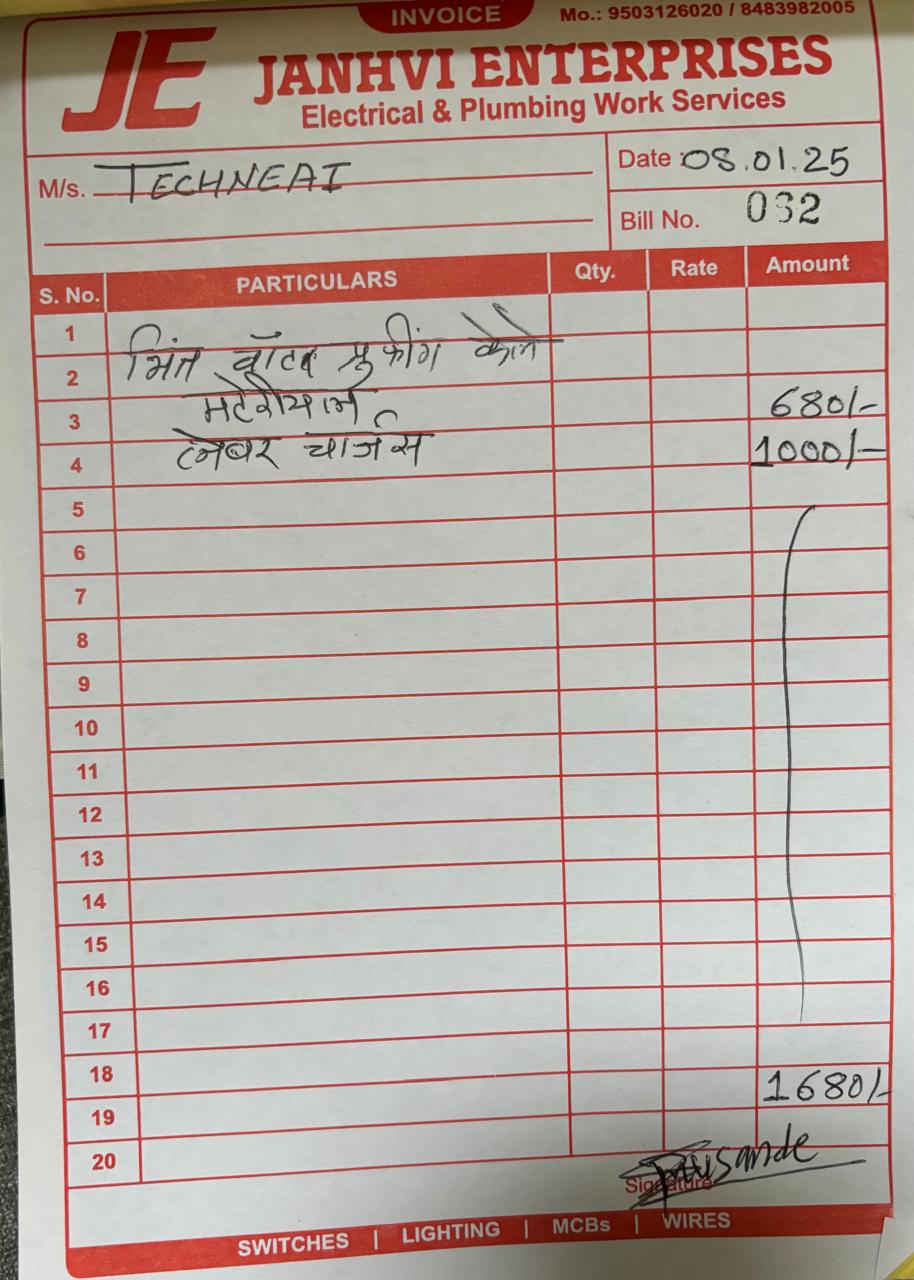 INVOICE
Mo.: 9503126020 / 8483982005
JE
JANHVI ENTERPRISES
Electrical & Plumbing Work Services
M/s. TECHNEAI
Date : 08.01.25
Bill No. 032
S. No. PARTICULARS Qty. Rate Amount
1
भिंत वॉटर प्रुफींग केले
2
मटेरीयल
3 680/-
लेबर चार्जेस
4 1000/-
5
6
7
8
9
10
11
12
13
14
15
16
17
18 1680/-
19
20
Signature
SWITCHES | LIGHTING | MCBs | WIRES